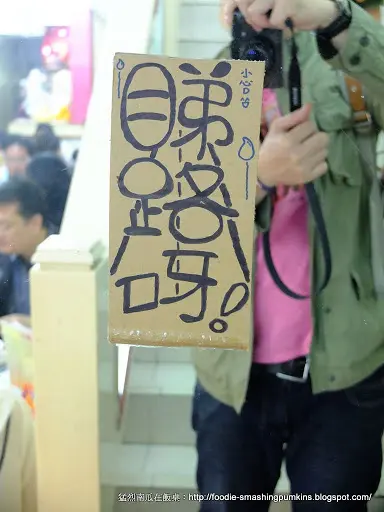 小心
睇路呀!
猛烈南瓜在飯桌:http://foodie-smashingpumkins.blogspot.com/